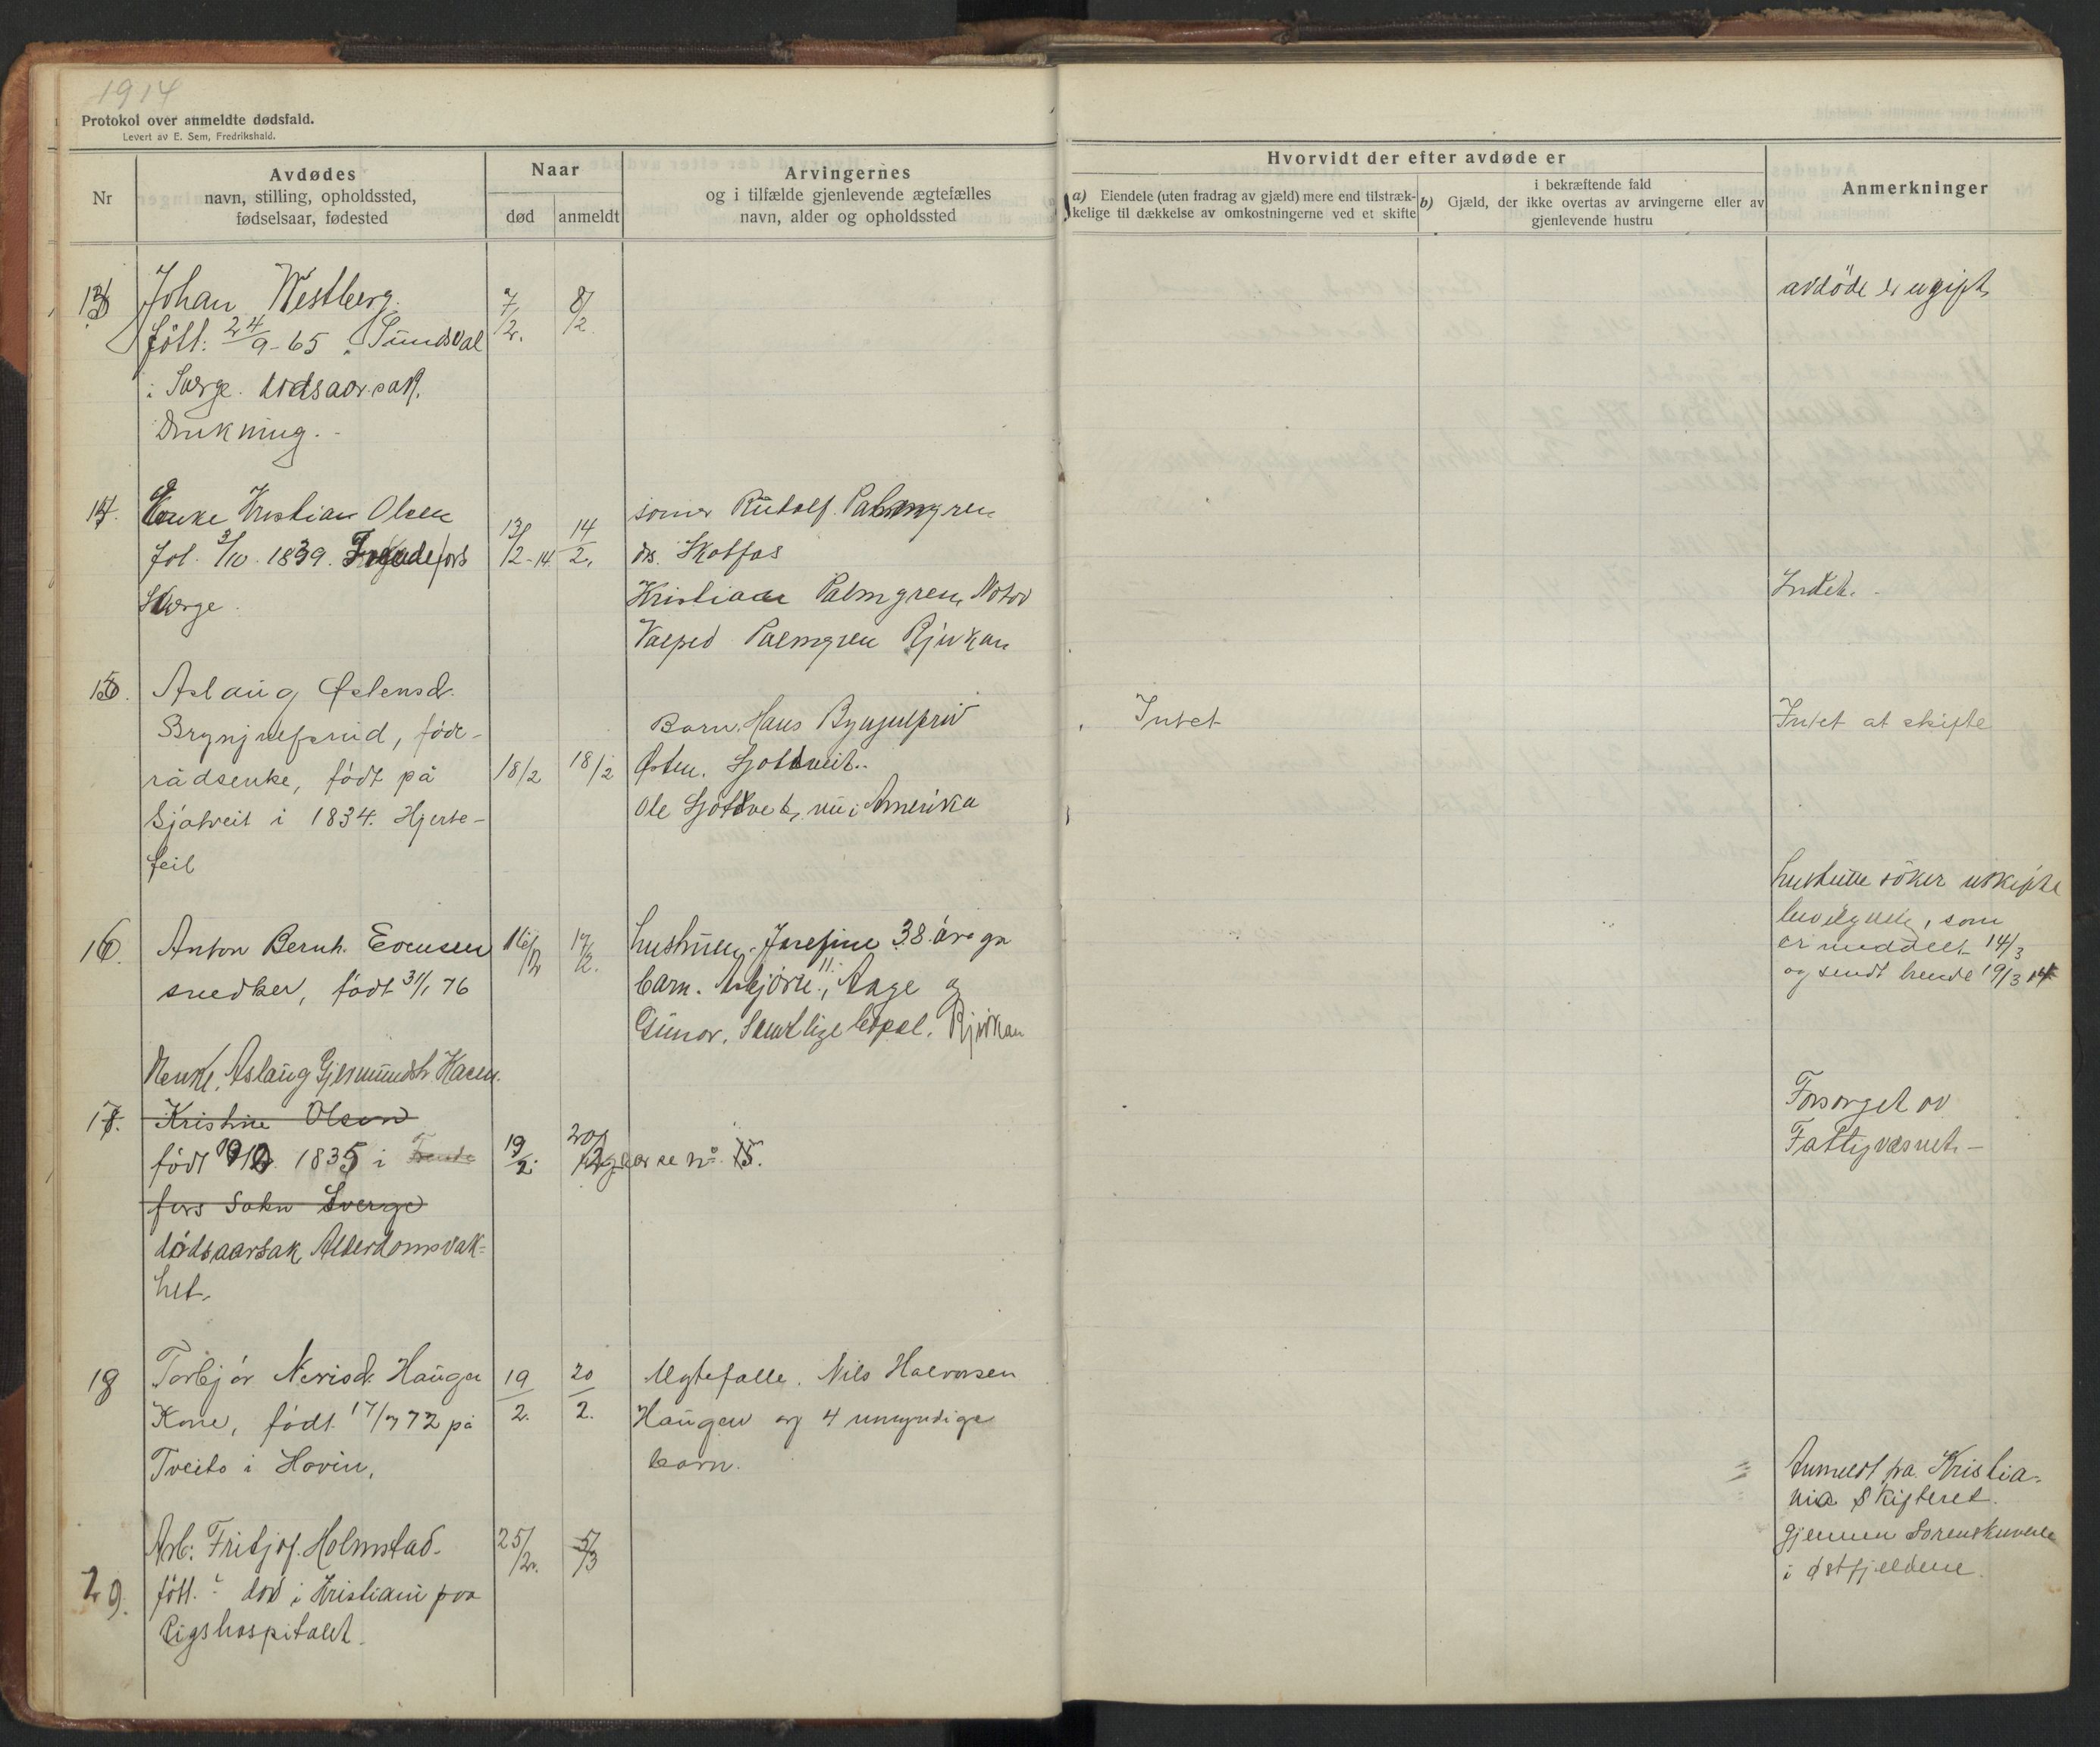 1914
Protokol over anmeldte dødsfald.
Levert av E. Sem, Fredrikshald.
Nr
Avdødes
navn, stilling, opholdssted,
fødselsaar, fødested
Naar
død
anmeldt
Arvingernes
og i tilfælde gjenlevende ægtefælles
navn, alder og opholdssted
Hvorvidt der efter avdøde er
a) Eiendele (uten fradrag av gjæld) mere end tilstræk-
kelige til dækkelse av omkostningerne ved et skifte
i bekræftende fald
b) Gjæld, der ikke overtas av arvingerne eller av
gjenlevende hustru
Anmerkninger
13
Johan Westberg.
født: 24/9-65 Sundsval
i Sverge.
Drukning.
7/2.
8/2.
avdöde er ugift
14.
Enke Kristian Olsen
1839.
Sverge.
13/2-14
14/2.
Rudolf Palmgren
Skotfos
Kristian Palmgren Notod
Palmgren Rjukan
Intet.
15.
Aslaug Østensd.
Brynjulfsrud, föde-
rådsenke, født på
Sjotveit i 1834. Hjerte-
feil
18/2
18/2
Barn. Hans
Østen.
Ole nu i Amerika
Intet
Intet at skifte
16.
Anton Bernh. Evensen
snedker, født 31/1 76
16/2
17/2.
hustruen. Josefine 38 år og
barn. Asbjörn 11., Aage og
Gunor. Samtlige bopæl. Rjukan
hustrue söker uskifte
bevilgning, som
er meddelt 14/3
og sendt hende 19/3 14
17.
Aslaug Gjermundsd.
Kristine Olsen
født 1835 i
fors Sokn Sverge
dødsaarsak Alderdomsvak-
het.
19/2.
20/2
se no. 15.
Forsørget av
Fattigvæsnet.-
18
Torbjör Nerisd. Haugen
Kone, født 17/7 72 på
Tveito i Hovin.
19/2.
20/2.
Ægtefælle. Nils Halvorsen
Haugen og 4 umyndige
barn.
29.
Arb: Fritjof Holmstad.
født ? død i Kristiani paa
Rigshospitalet.
25/2.
5/3
Anmeldt fra Kristia-
nia Skifteret.
gjennem Sorenskuveren
i Østfjeldene.